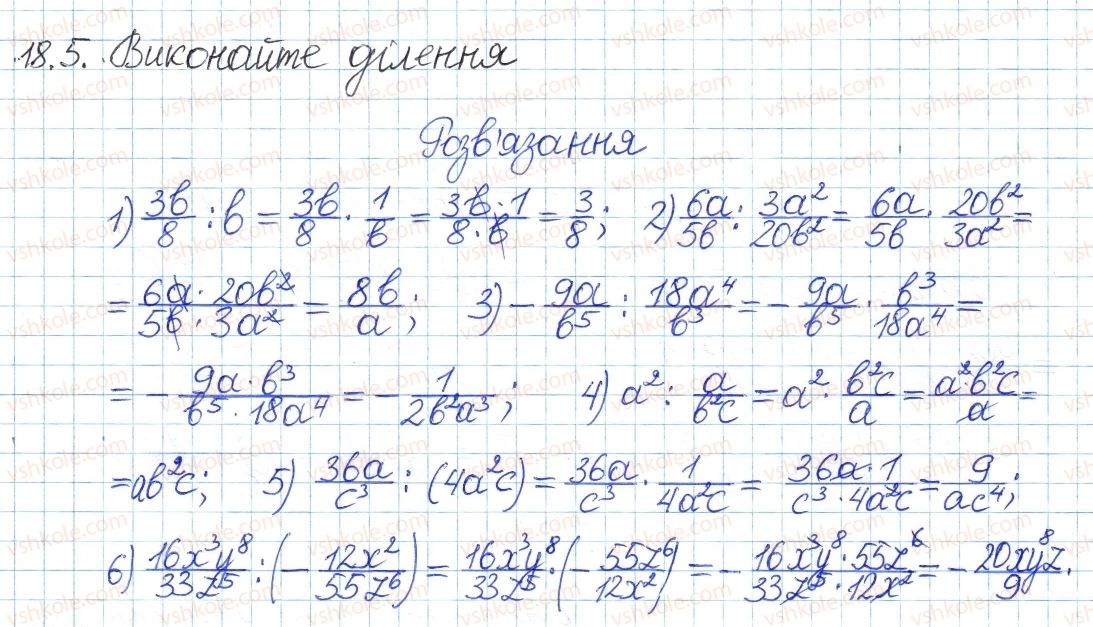 18.5. Виконайте ділення
Розв'язання
1) 3b/8 : b = 3b/8 · 1/b = 3b·1/8·b = 3/8; 2) 6a/5b : 3a²/20b² = 6a/5b · 20b²/3a² =
= 6a·20b²/5b·3a² = 8b/a; 3) - 9a/b⁵ : 18a⁴/b³ = - 9a/b⁵ · b³/18a⁴ =
= - 9a·b³/b⁵·18a⁴ = - 1/2b²a³; 4) a² : a/b²c = a² · b²c/a = a²·b²c/a =
= ab²c; 5) 36a/c³ : (4a²c) = 36a/c³ · 1/4a²c = 36a·1/c³·4a²c = 9/ac⁴;
6) 16x³y⁸/33z⁵ : (- 12x²/55z⁶) = 16x³y⁸/33z⁵ · (- 55z⁶/12x²) = - 16x³y⁸·55z⁶/33z⁵·12x² = - 20xy⁸z/9.